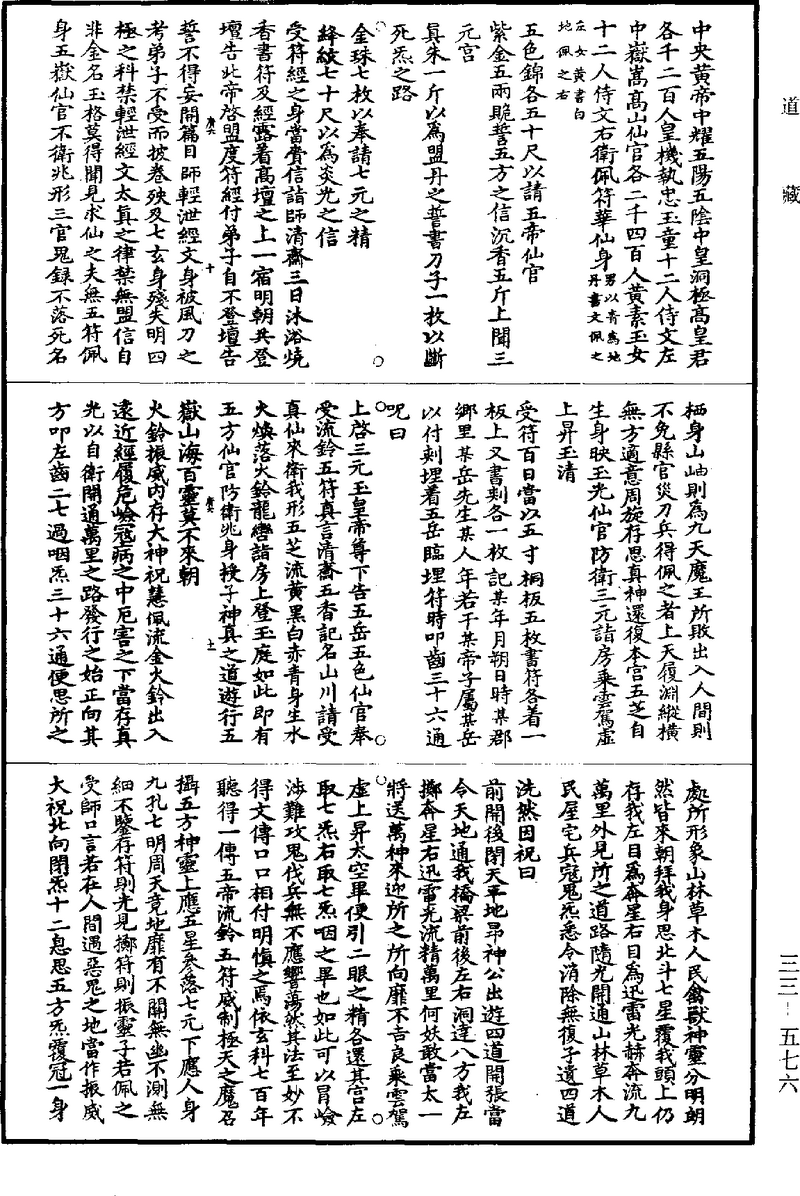 道藏
三三—五七六
中央黃帝中耀五陽五陰中皇洞極高皇君
各千二百人皇機執忠玉童十二人侍文左
中嶽嵩高山仙官各二千四百人黃素玉女
十二人侍文右衛佩符華仙身男以青為地丹書文佩之
左女黃書白地佩之右
五色錦各五十尺以請五帝仙官
紫金五兩跪誓五方之信沉香五斤上聞三
元宮
真朱一斤以為盟丹之誓書刀子一枚以斷
死炁之路
金珠七枚以奉請七元之精
絳紋七十尺以為炎光之信
受符經之身當賫信詣師清齋三日沐浴燒
香書符及經露着高壇之上一宿明朝共登
壇告北帝啓盟度符經付弟子自不登壇告
誓不得妄開篇目師輕泄經文身被風刀之
考弟子不受而披卷殃及七玄身殘失明四
極之科禁輕泄經文太真之律禁無盟信自
非金名玉格莫得聞見求仙之夫無五符佩
身五嶽仙官不衛兆形三官鬼録不落死名
栖身山岫則為九天魔王所敗出入人間則
不免縣官災刀兵得佩之者上天履淵縱橫
無方適意周旋存思真神還復本宮五芝自
生身映玉光仙官防衛三元詣房乘雲駕虛
上昇玉清
受符百日當以五寸桐板五枚書符各着一
板上又書刺各一枚記某年月朔日時某郡
鄉里某岳先生某人年若干某帝子屬某岳
以付刺埋着五岳臨埋符時叩齒三十六通
呪曰
上啓三元玉皇帝尊下告五岳五色仙官奉
受流鈴五符真言清齋五香記名山川請受
真仙來衛我形五芝流黃黑白赤青身生水
火煥落火鈴龍轡詣房上登玉庭如此即有
五方仙官防衛兆身授子神真之道遊行五
嶽山海百靈莫不來朝
火鈴振威內存大神祝慧佩流金火鈴出入
遠近經履危嶮寇病之中厄害之下當存真
光以自衛開通萬里之路發行之始正向其
方叩左齒二七過咽炁三十六通便思所之
處所形象山林草木人民禽獸神靈分明朗
然皆來朝拜我身思北斗七星覆我頭上仍
存我左目為奔星右目為迅雷光赫奔流九
萬里外見所之道路隨光開通山林草木人
民屋宅兵寇鬼炁悉令消除無復子遺四道
洗然因祝曰
前開後閉天平地昂神公出遊四道開張當
令天地通我橋梁前後左右洞達八方我左
擲奔星右迅電光流精萬里何妖敢當太一
將送萬神來迎所之所向靡不吉良乘雲駕
虛上昇太空畢便引二眼之精各還其宮左
取七炁右取七炁咽之畢也如此可以冒嶮
涉難攻鬼伐兵無不應響蕩然其法至妙不
得文傳口口相付明慎之焉依玄科七百年
聽得一傳五帝流鈴五符威制極天之魔召
攝五方神靈上應五星參落七元下應人身
九孔七明周天竟地靡有不關無幽不測無
細不鑒存符則光見擲符則振靈子若佩之
受師口言若在人間遇惡鬼之地當作振威
大祝北向閉炁十二息思五方炁覆冠一身